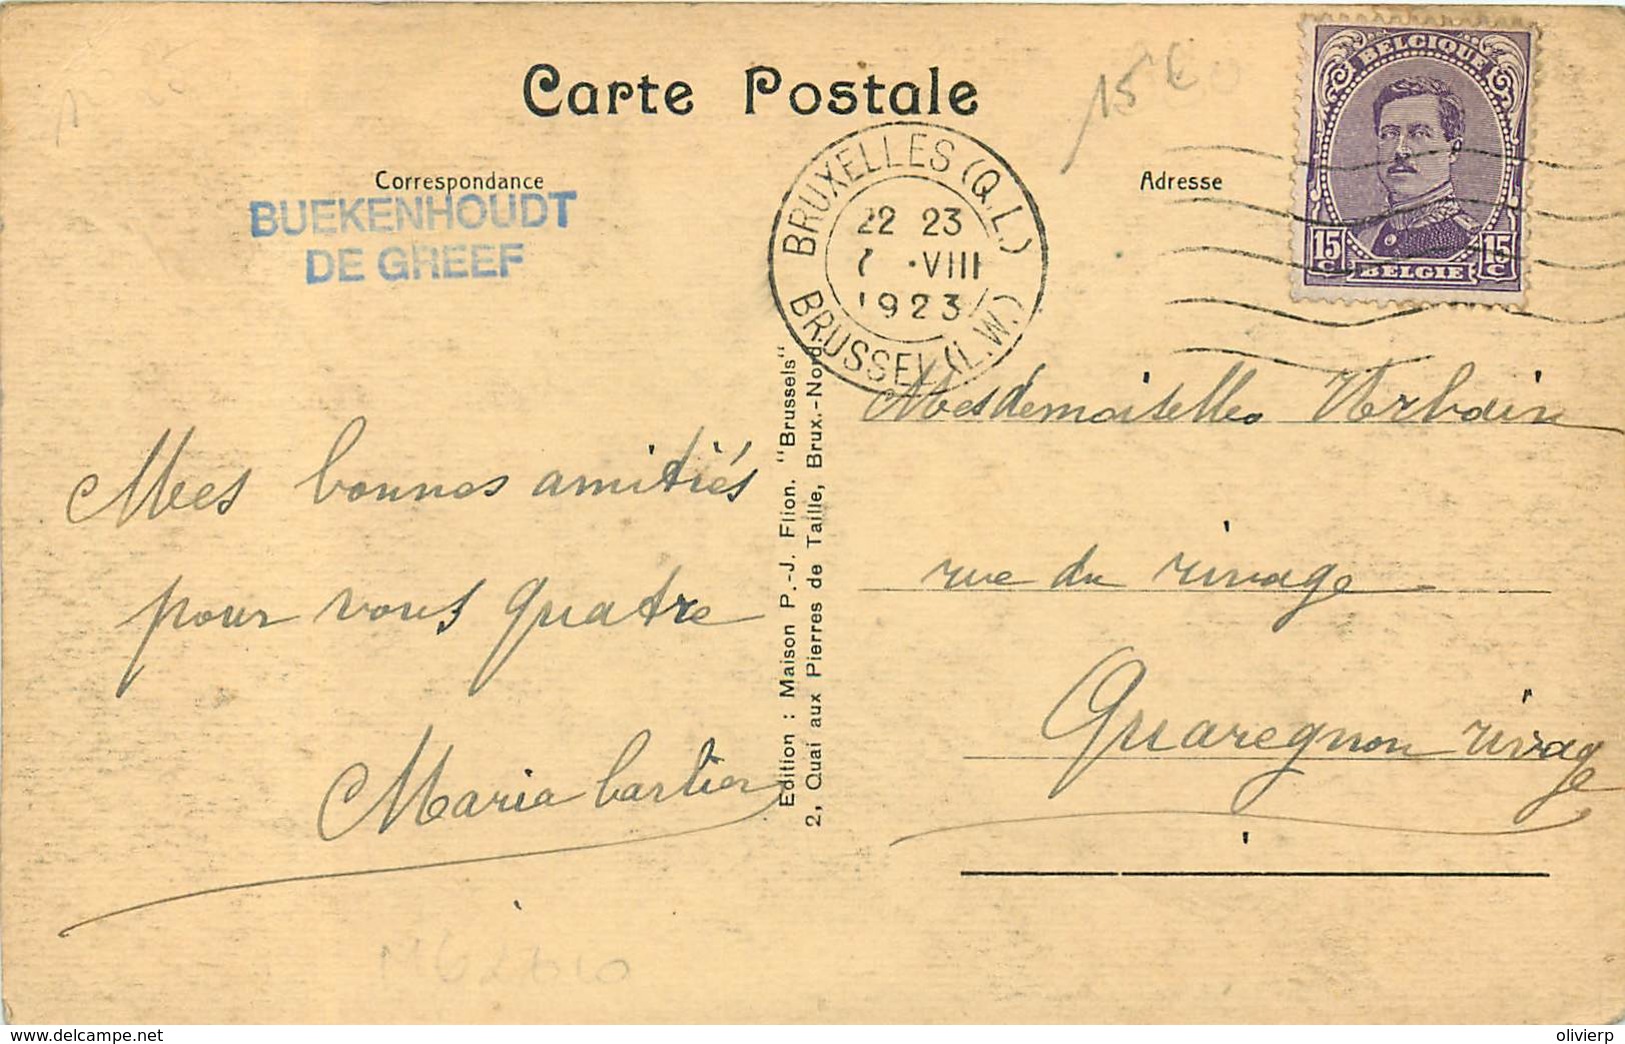 Carte Postale
15 €
BELGIQUE
15 C
15 C
BELGIE
Correspondance
Adresse
BUEKENHOUDT
DE GREEF
BRUXELLES (Q.L.)
22 23
7 ·VIII
1923
BRUSSEL (L.W.)
Mes bonnes amitiés
pour vous quatre
Maria
Edition : Maison P.-J. Flion. "Brussels"
2, Quai aux Pierres de Taille, Brux.-Nord
Mesdemoiselles Urbain
rue du rivage
Quaregnon rivage
www.delcampe.net
olivierp